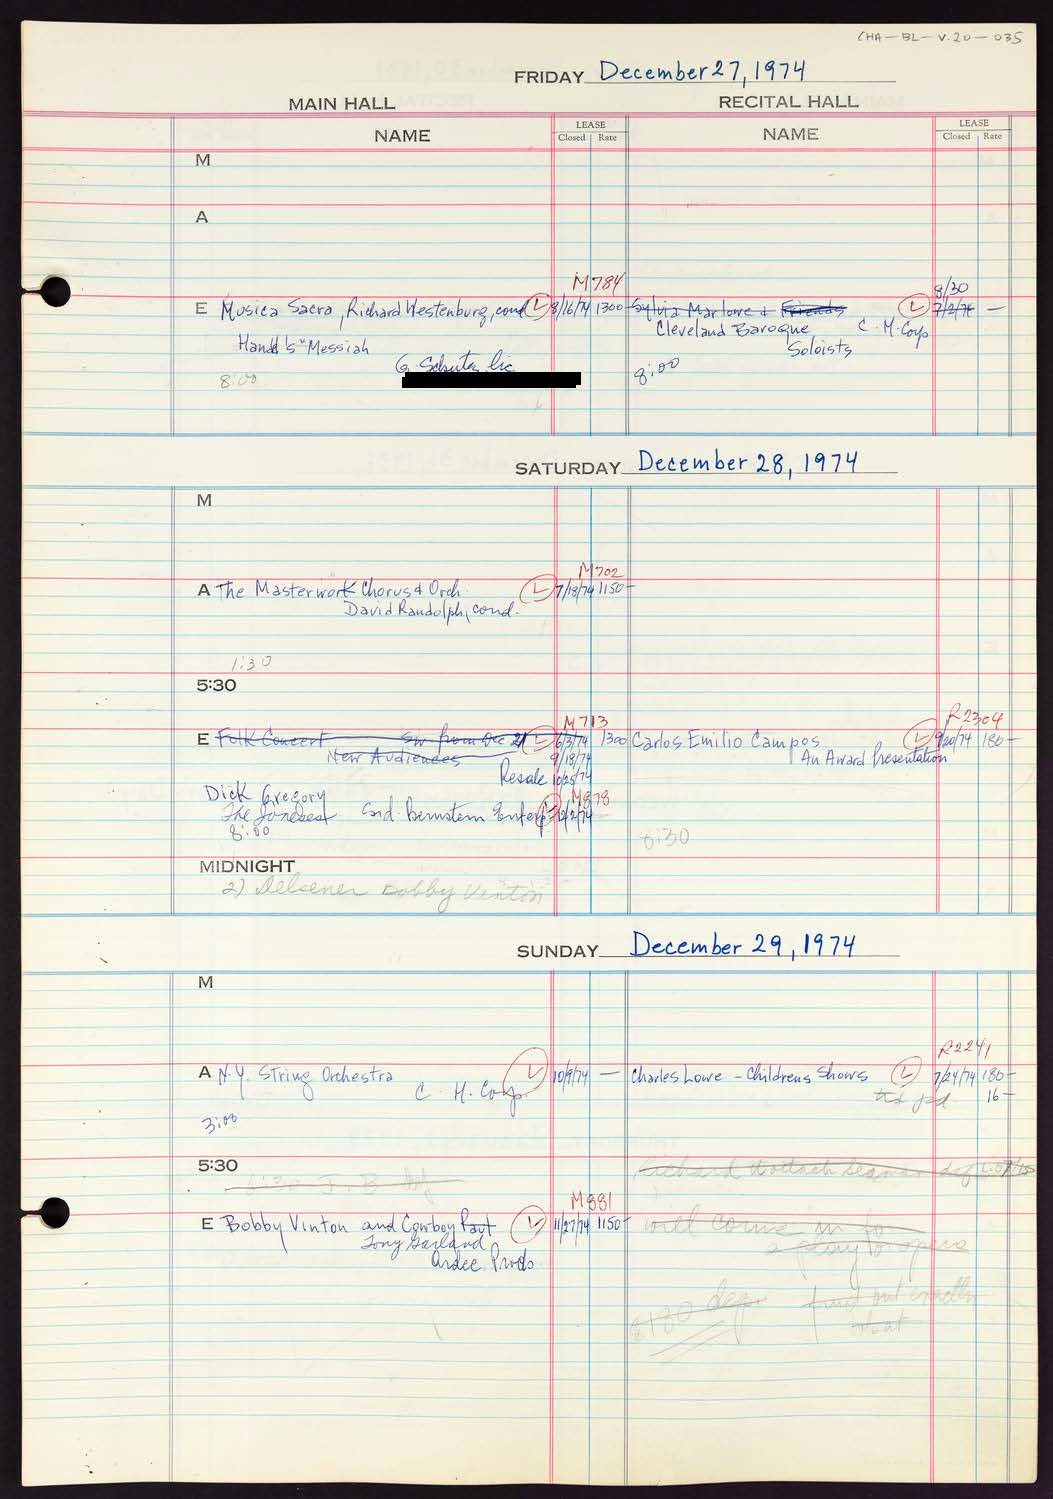 CHA-BL-V.20-035
FRIDAY December 27, 1974
MAIN HALL
RECITAL HALL
NAME
LEASE
Closed Rate
NAME
LEASE
Closed Rate
M
A
M784
8/30
E Musica Sacra, Richard Westenburg, cond L 8/16/74 1300-
Sylvia Marlowe & Friends L 7/2/74 —
Cleveland Baroque C. M. Corp
Soloists
Handl's "Messiah
G. Schutz
8:00
8:00
SATURDAY December 28, 1974
M
M702
A The Masterwork Chorus & Orch. L 7/18/74 1150-
David Randolph, cond.
1:30
5:30
M713
R2304
E Folk Concert Sw from Dec 21 L 6/3/74 1300
Carlos Emilio Campos L 9/20/74 180-
New Audiences 9/18/74
An Award Presentation
Resale 10/25/74
Dick Gregory M878
The Jonesest Sid Bernstein Enterp L 12/2/74
8:00
8:30
MIDNIGHT
2) Delsener Bobby Vinton
SUNDAY December 29, 1974
M
R2241
A N.Y. String Orchestra L 10/9/74 —
Charles Lowe - Childrens Shows L 7/24/74 180-
C. H. Corp.
tks pd. 16-
3:00
5:30
6:30 J. B.
Richard
M881
E Bobby Vinton and Cowboy Part L 11/27/74 1150-
will come in for
Tony Garland
Ardee Prods
$180 dep.
find out exactly
what